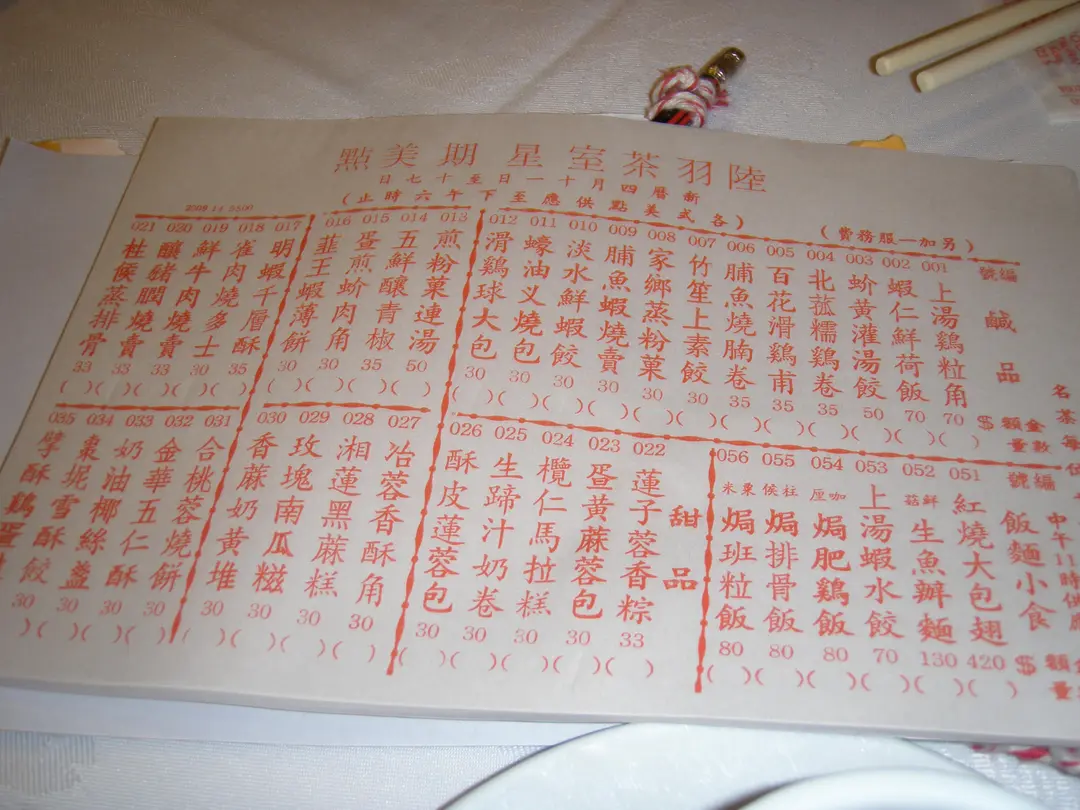 陸羽茶室星期美點
新曆四月十一日至十七日
(各式美點供應至下午六時止)
(另加一服務費)
編號
鹹品
$額金
量數
001 上湯鷄粒角 70
002 蝦仁鮮荷飯 70
003 蚧黃灌湯餃 50
004 北菰糯鷄卷 35
005 百花滑鷄甫 35
006 脯魚燒腩卷 35
007 竹笙上素餃 30
008 家鄉蒸粉菓 30
009 脯魚蝦燒賣 30
010 淡水鮮蝦餃 30
011 蠔油义燒包 30
012 滑鷄球大包 30
013 煎粉菓連湯 50
014 五鮮釀青椒 35
015 蛋煎蚧肉角 30
016 韮王蝦薄餅 30
017 明蝦千層酥 35
018 雀肉燒多士 30
019 鮮牛肉燒賣 33
020 釀豬膶燒賣 33
021 柱候蒸排骨 33
編號
飯麵小食
$額
量
051 紅燒大包翅 420
052 鮮菇生魚辦麵 130
053 上湯蝦水餃 70
054 咖厘焗肥鷄飯 80
055 柱侯焗排骨飯 80
056 粟米焗班粒飯 80
甜品
022 蓮子蓉香粽 33
023 蛋黃蔴蓉包 30
024 欖仁馬拉糕 30
025 生蹄汁奶卷 30
026 酥皮蓮蓉包 30
027 冶蓉香酥角 30
028 湘蓮黑蔴糕 30
029 玫瑰南瓜糍 30
030 香蔴奶黃堆 30
031 合桃蓉燒餅 30
032 金華五仁酥 30
033 奶油椰絲盞 30
034 棗坭雪酥餃 30
035 擘酥鷄蛋
名茶每位
中午11時供應